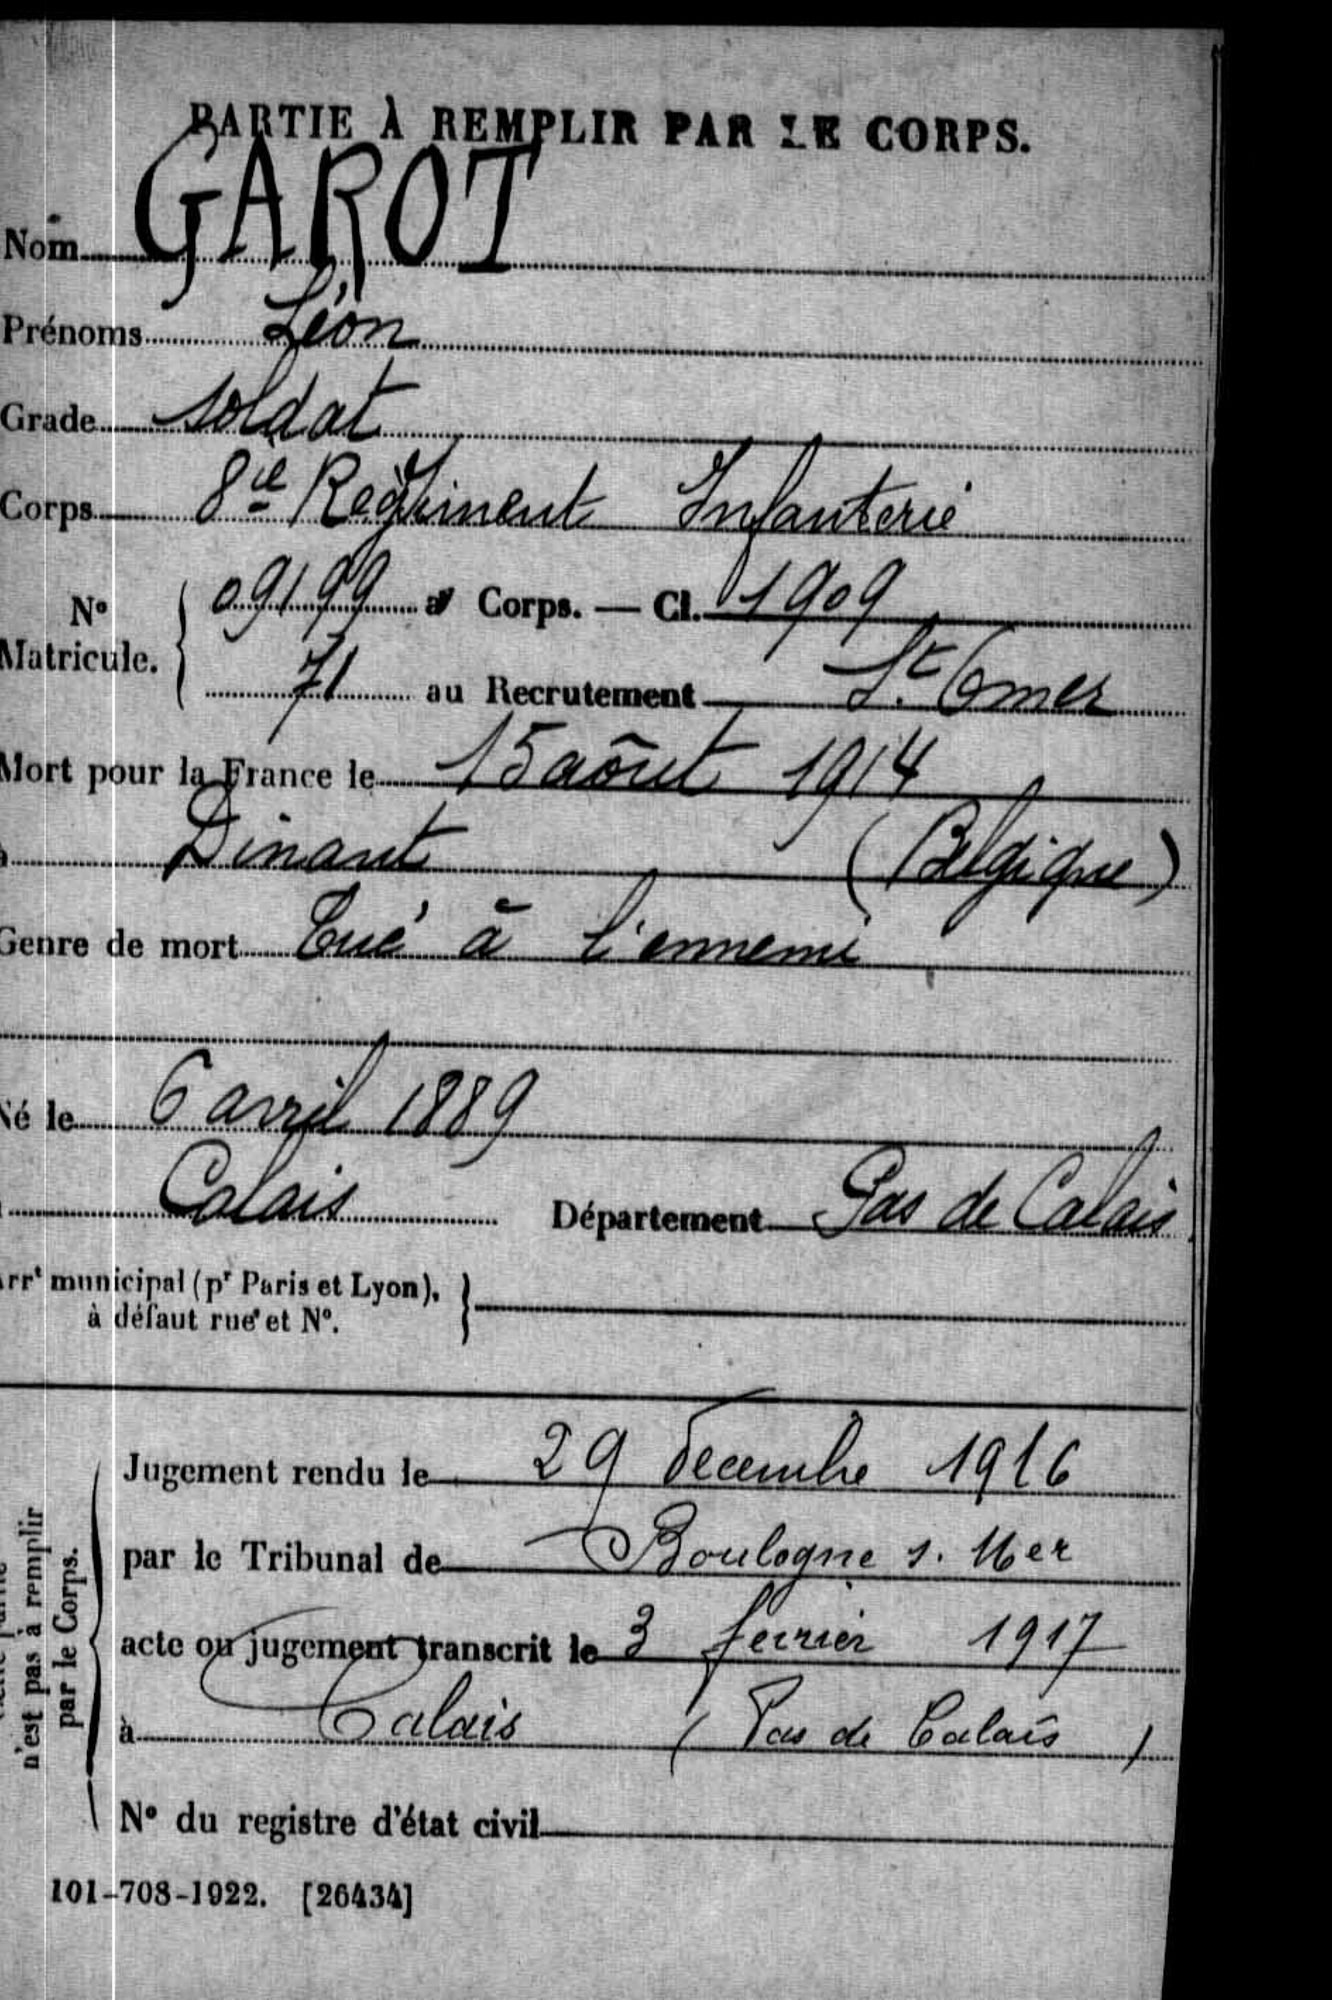 PARTIE À REMPLIR PAR LE CORPS.
Nom GAROT
Prénoms Léon
Grade soldat
Corps 8ie Régiment Infanterie
No Matricule. { 09199 au Corps. — Cl. 1909
71 au Recrutement St. Omer
Mort pour la France le 15 août 1914
à Dinant (Belgique)
Genre de mort Tué à l'ennemi
Né le 6 avril 1889
à Calais Département Pas de Calais
Arrt municipal (pr Paris et Lyon), }
à défaut rue et No.
n'est pas à remplir
par le Corps.
Jugement rendu le 29 Decembre 1916
par le Tribunal de Boulogne s. Mer
acte ou jugement transcrit le 3 fevrier 1917
à Calais (Pas de Calais)
No du registre d'état civil
101-708-1922. [26434]